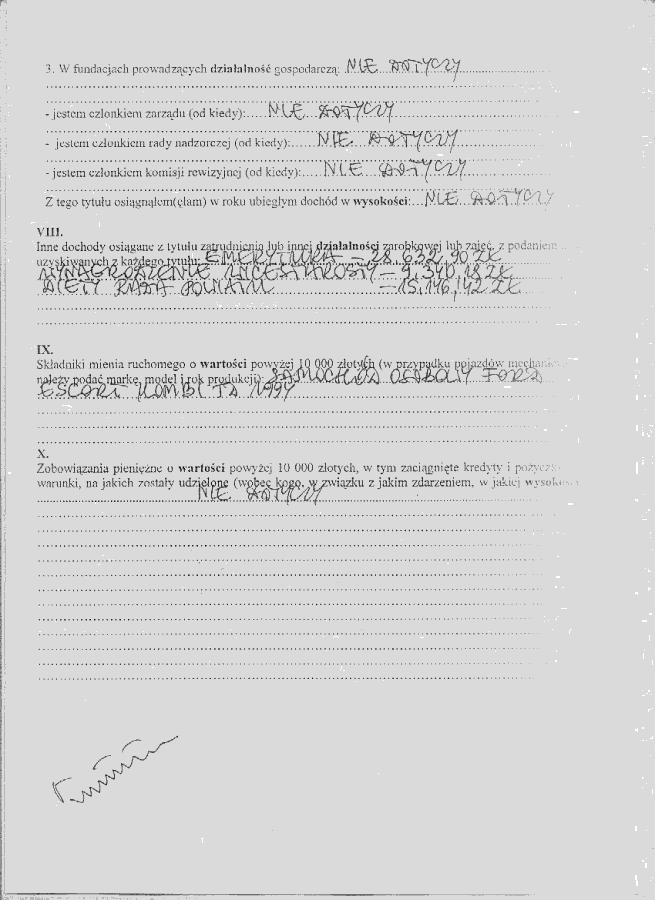 3. W fundacjach prowadzących działalność gospodarczą: NIE DOTYCZY
- jestem członkiem zarządu (od kiedy): NIE DOTYCZY
- jestem członkiem rady nadzorczej (od kiedy): NIE DOTYCZY
- jestem członkiem komisji rewizyjnej (od kiedy): NIE DOTYCZY
Z tego tytułu osiągnąłem(ęłam) w roku ubiegłym dochód w wysokości: NIE DOTYCZY
VIII.
Inne dochody osiągane z tytułu zatrudnienia lub innej działalności zarobkowej lub zajęć, z podaniem
uzyskiwanych z każdego tytułu: EMERYTURA – 28.632,90 ZŁ
WYNAGRODZENIE – 9.340,18 ZŁ
DIETY RADA POWIATU – 15.146,42 ZŁ
IX.
Składniki mienia ruchomego o wartości powyżej 10 000 złotych (w przypadku pojazdów
należy podać markę, model i rok produkcji): SAMOCHÓD OSOBOWY FORD
ESCORT KOMBI TD 1994
X.
Zobowiązania pieniężne o wartości powyżej 10 000 złotych, w tym zaciągnięte kredyty i
warunki, na jakich zostały udzielone (wobec kogo, w związku z jakim zdarzeniem, w jakiej
NIE DOTYCZY